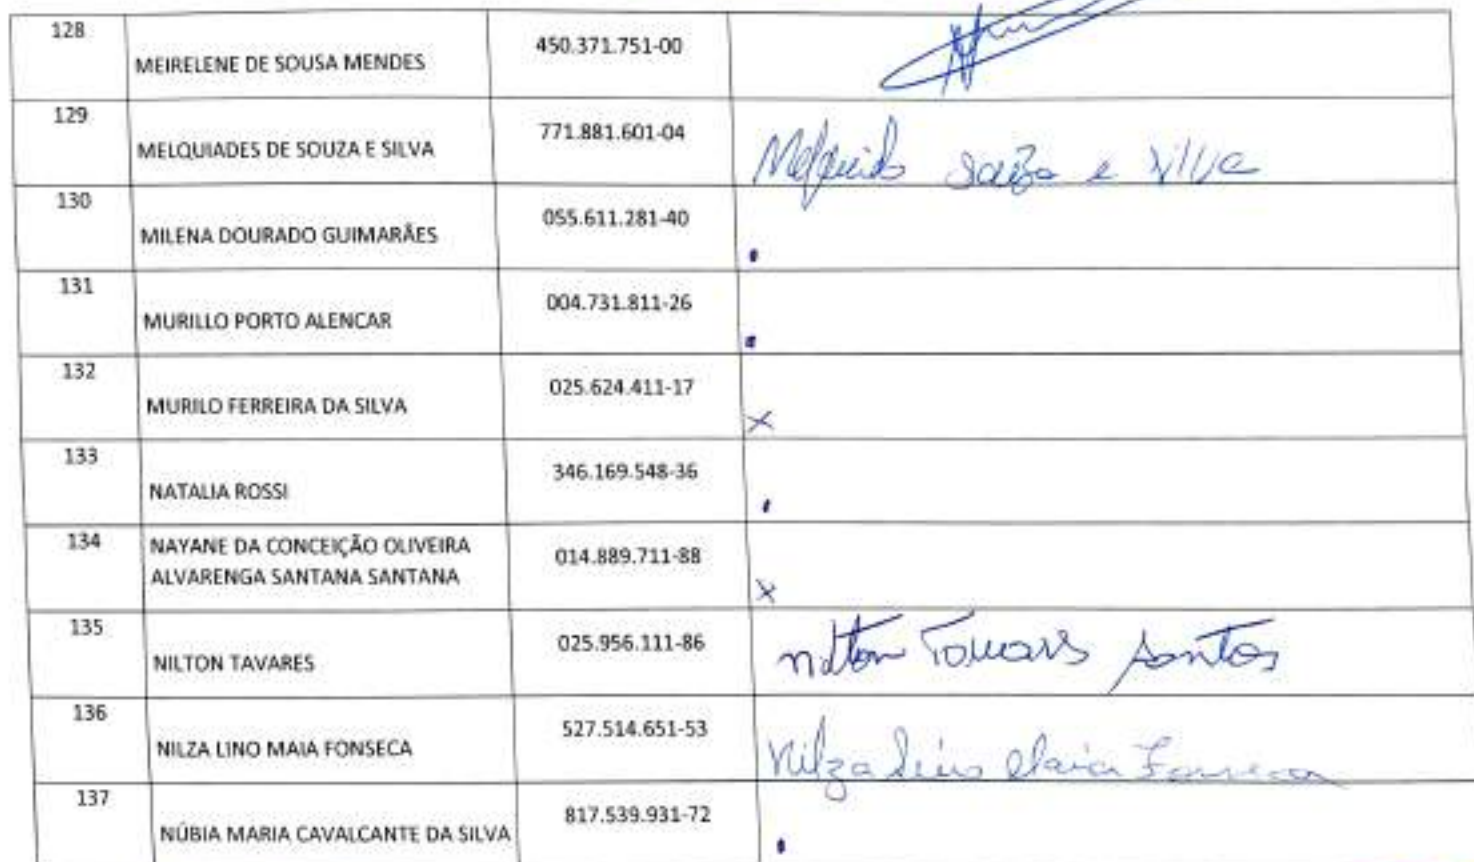 128 MEIRELENE DE SOUSA MENDES 450.371.751-00
129 MELQUIADES DE SOUZA E SILVA 771.881.601-04 Melquids souza e silva
130 MILENA DOURADO GUIMARÃES 055.611.281-40
131 MURILLO PORTO ALENCAR 004.731.811-26
132 MURILO FERREIRA DA SILVA 025.624.411-17 X
133 NATALIA ROSSI 346.169.548-36
134 NAYANE DA CONCEIÇÃO OLIVEIRA
ALVARENGA SANTANA SANTANA 014.889.711-88 X
135 NILTON TAVARES 025.956.111-86 nilton Tavares santos
136 NILZA LINO MAIA FONSECA 527.514.651-53 Nilza Lino Maia Fonseca
137 NÚBIA MARIA CAVALCANTE DA SILVA 817.539.931-72